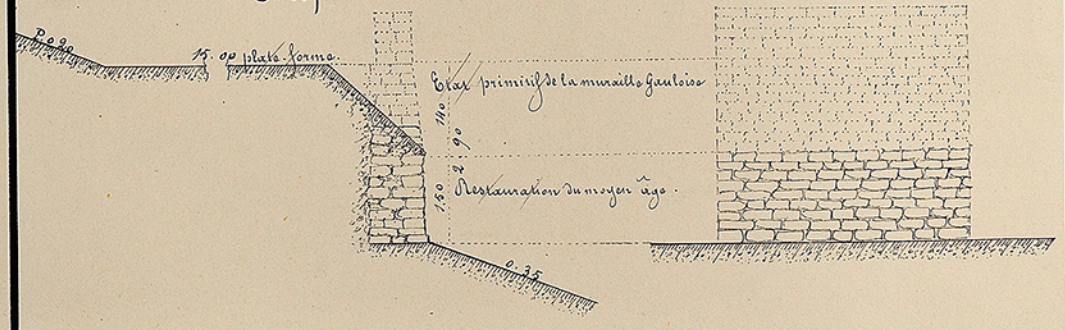 P. 0 20
15.00 plate-forme.
Etat primitif de la muraille Gauloise
140
2 90
1.50
Restauration du moyen âge.
0.35